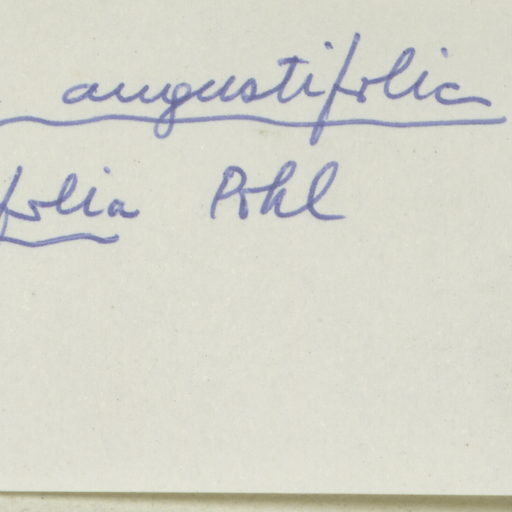 angustifolia
folia Pohl